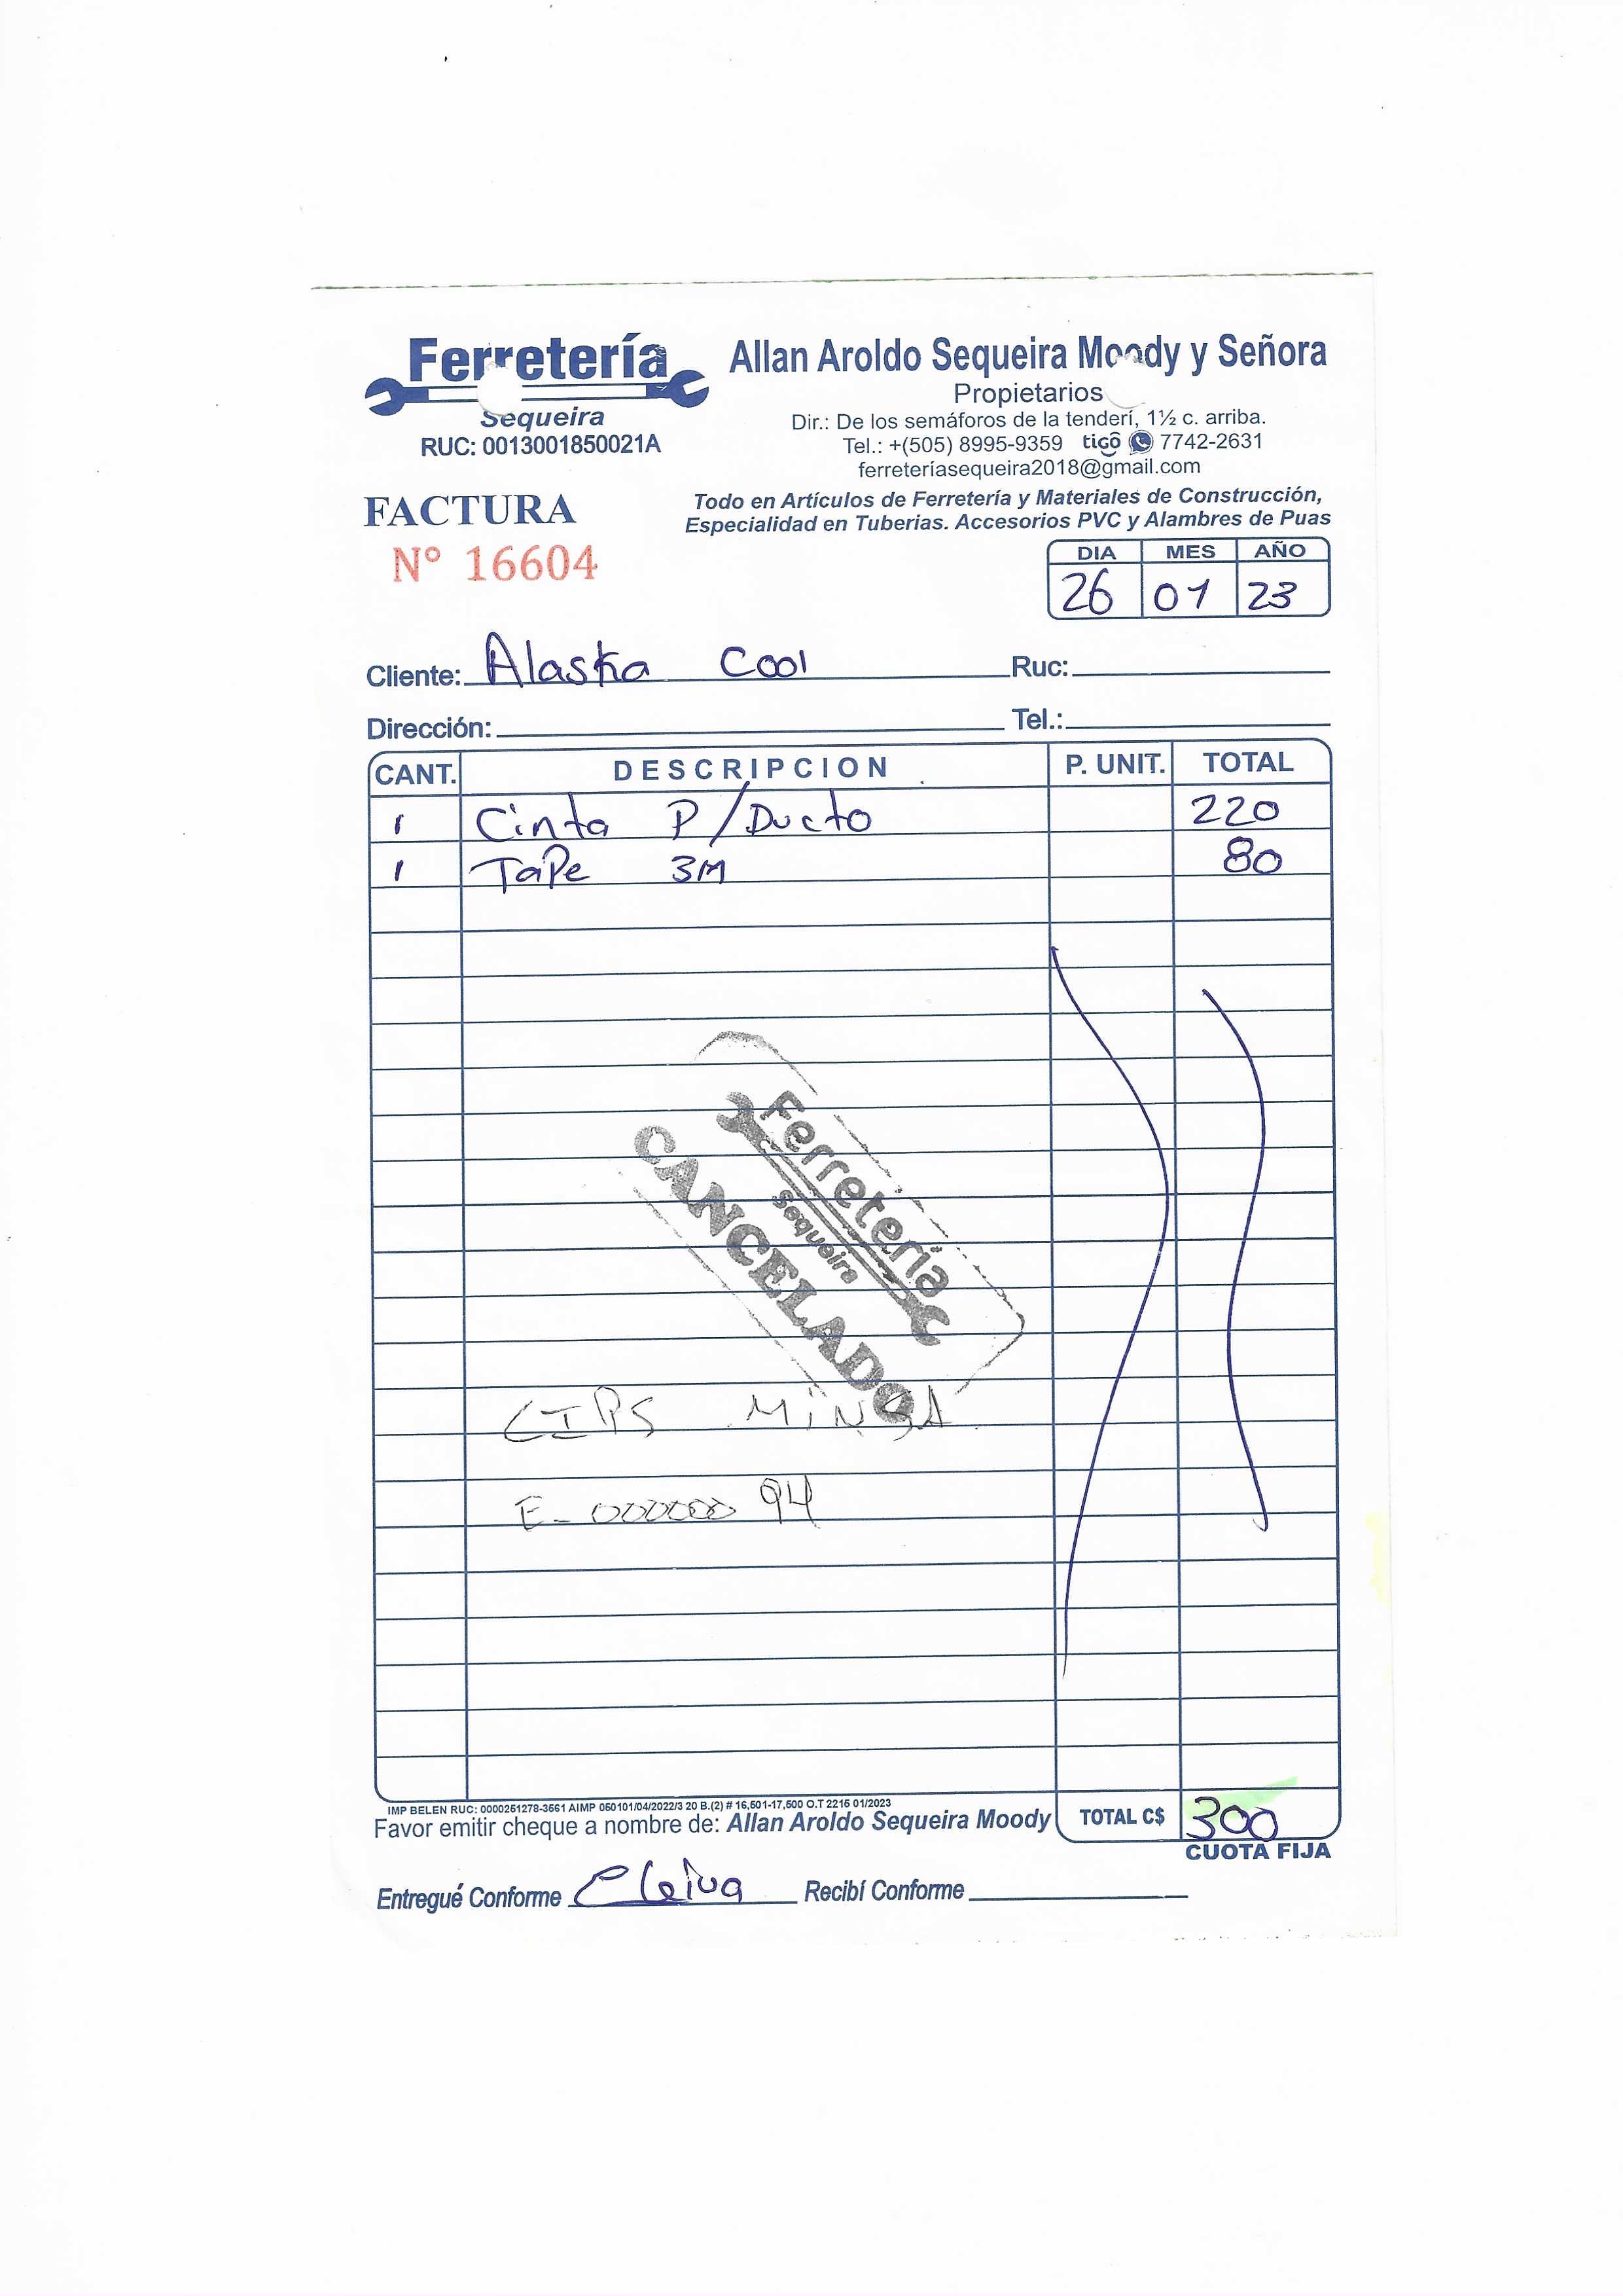 Ferretería
Sequeira
RUC: 0013001850021A
Allan Aroldo Sequeira Moody y Señora
Propietarios
Dir.: De los semáforos de la tenderí, 1½ c. arriba.
Tel.: +(505) 8995-9359 tigo 7742-2631
ferreteríasequeira2018@gmail.com
Todo en Artículos de Ferretería y Materiales de Construcción,
Especialidad en Tuberias. Accesorios PVC y Alambres de Puas
FACTURA
Nº 16604
DIA MES AÑO
26 01 23
Cliente: Alaska Cool Ruc:
Dirección: Tel.:
CANT. DESCRIPCION P. UNIT. TOTAL
1 Cinta P/Ducto 220
1 TaPe 3M 80
Ferretería
Sequeira
CANCELADO
E- 000000 94
IMP BELEN RUC: 0000251278-3561 AIMP 050101/04/2022/3 20 B.(2) # 16,501-17,500 O.T 2215 01/2023
Favor emitir cheque a nombre de: Allan Aroldo Sequeira Moody TOTAL C$ 300
CUOTA FIJA
Entregué Conforme Recibí Conforme